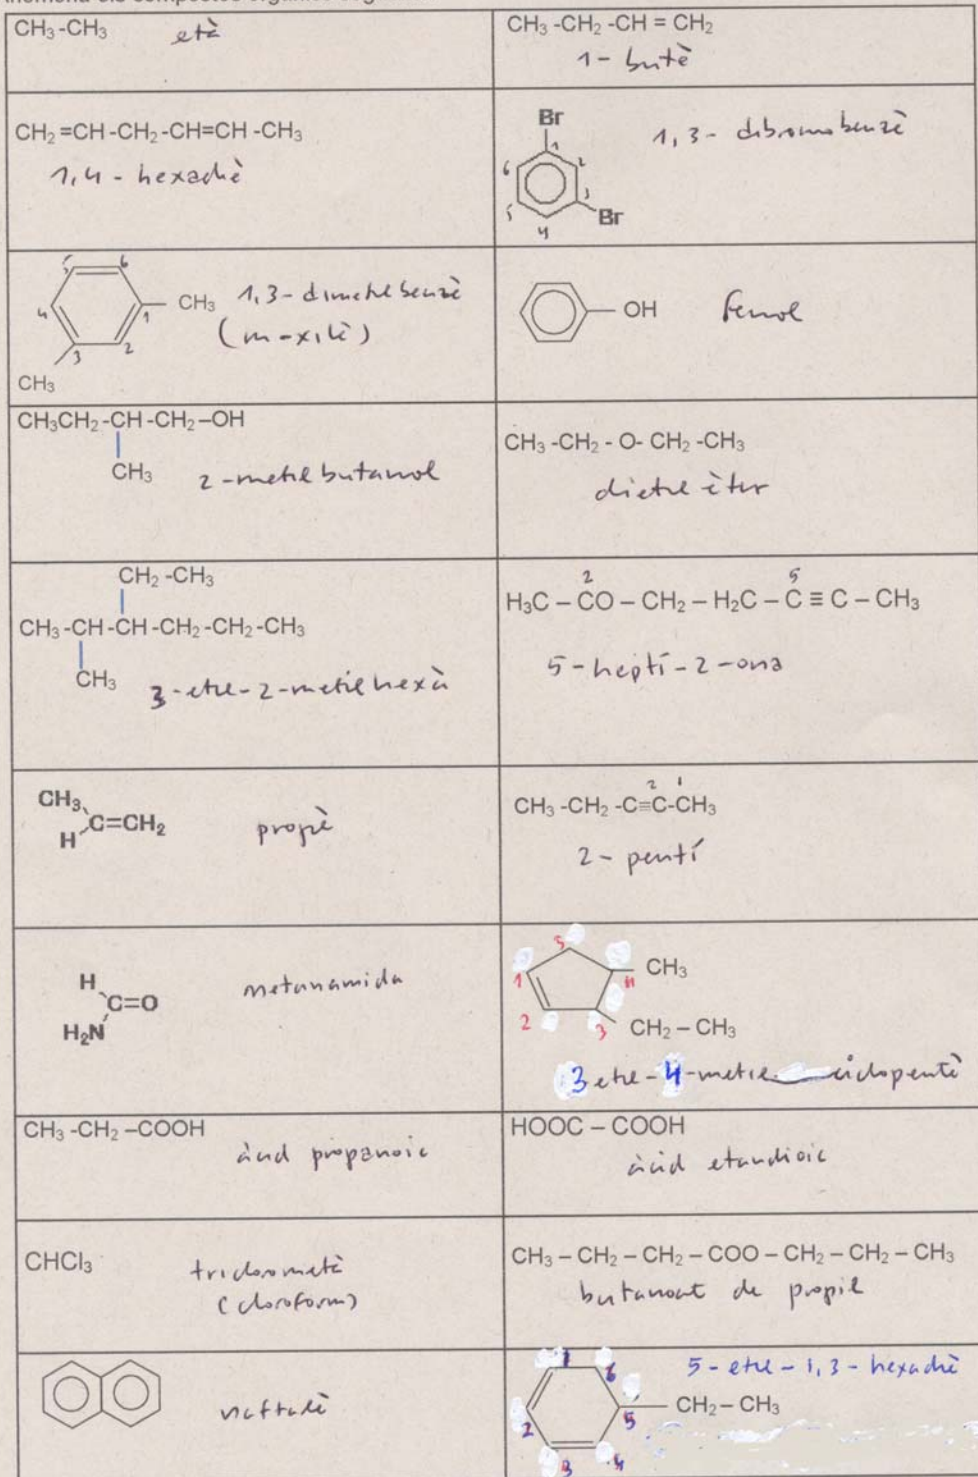 CH₃-CH₃ età
CH₃-CH₂-CH=CH₂
1-butè
CH₂=CH-CH₂-CH=CH-CH₃
1,4-hexadiè
Br
1
2
3
4
5
6
Br
1,3-dibromobenzè
5
6
4
1
3
2
CH₃
CH₃
1,3-dimetilbenzè
(m-xilè)
OH
Fenol
CH₃CH₂-CH-CH₂-OH
CH₃
2-metilbutanol
CH₃-CH₂-O-CH₂-CH₃
dietil èter
CH₂-CH₃
CH₃-CH-CH-CH₂-CH₂-CH₃
CH₃
3-etil-2-metilhexà
2 5
H₃C-CO-CH₂-H₂C-C≡C-CH₃
5-heptí-2-ona
CH₃
C=CH₂
H
propè
2 1
CH₃-CH₂-C≡C-CH₃
2-pentí
H
C=O
H₂N
metanamida
5
1
4
CH₃
2
3
CH₂-CH₃
3 etil-4-metil ciclopentè
CH₃-CH₂-COOH
àcid propanoic
HOOC-COOH
àcid etandioic
CHCl₃
triclorometà
(cloroform)
CH₃-CH₂-CH₂-COO-CH₂-CH₂-CH₃
butanoat de propil
naftalè
5-etil-1,3-hexadiè
1
6
CH₂-CH₃
2
5
3
4